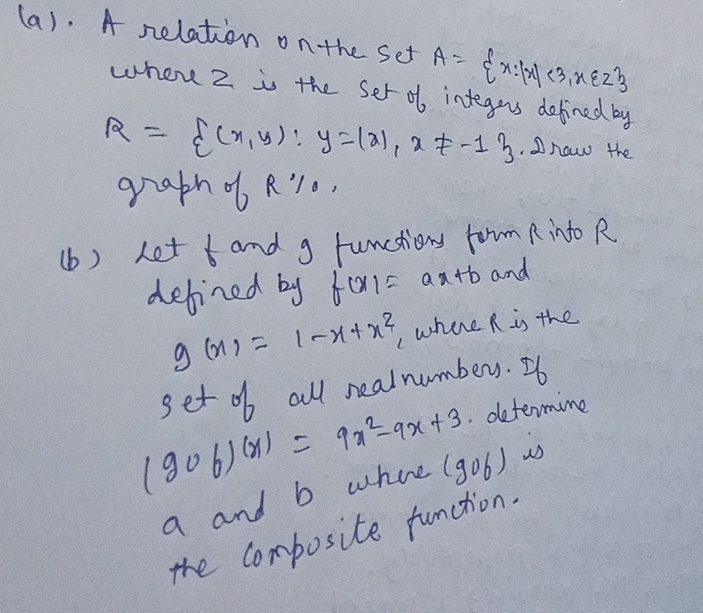 (a). A relation on the set A = {x:|x|<3, x ∈ Z}
where Z is the set of integers defined by
R = {(x,y): y=|x|, x ≠ -1}. Draw the
graph of R%.
(b) Let f and g functions form R into R
defined by f(x) = ax+b and
g(x) = 1-x+x², where R is the
set of all real numbers. If
(gof)(x) = 9x²-9x+3. determine
a and b where (gof) is
the composite function.